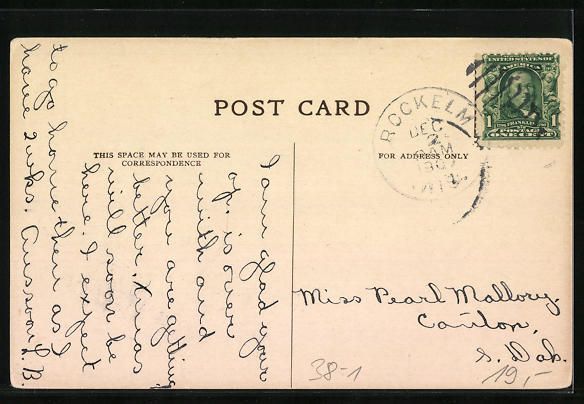 POST CARD
THIS SPACE MAY BE USED FOR
CORRESPONDENCE
FOR ADDRESS ONLY
UNITED STATES OF
AMERICA
1 FRANKLIN 1
POSTAGE
ONE CENT
ROCKELM
DEC
2
AM
190
WIS.
I am glad your
op. is over
with and
you are getting
better. Xmas
will soon be
here. I expect
to go home then as I
have 2 wks. Ans soon L. B.
Miss Pearl Mallory.
Canton,
S. Dak.
38-1
19,-